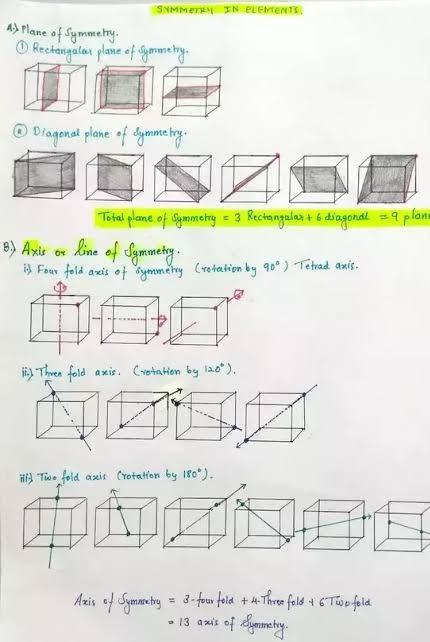 SYMMETRY IN ELEMENTS.
A.) Plane of Symmetry.
① Rectangular plane of Symmetry.
② Diagonal plane of Symmetry.
Total plane of Symmetry = 3 Rectangular + 6 diagonal = 9 plane
B.) Axis or line of Symmetry.
i) Four fold axis of symmetry (rotation by 90°) Tetrad axis.
ii) Three fold axis. (rotation by 120°).
iii) Two fold axis (rotation by 180°).
Axis of Symmetry = 3-four fold + 4-Three fold + 6 Two fold
= 13 axis of Symmetry.